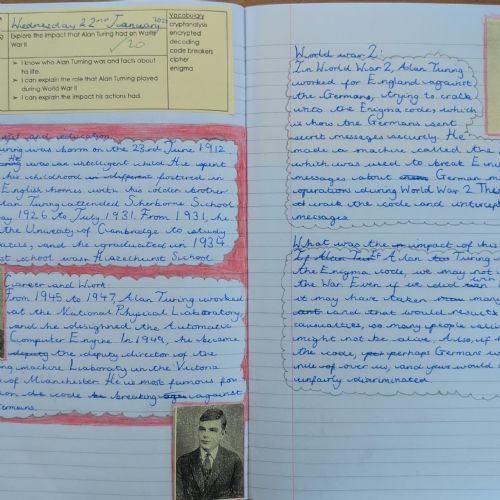 Wednesday 22nd January
Explore the impact that Alan Turing had on World
War II
I know who Alan Turning was and facts about
his life.
I can explain the role that Alan Turning played
during World War II
I can explain the impact his actions had.
Vocabulary
cryptanalysis
encrypted
decoding
code breakers
cipher
enigma
and education
was born on the 23rd June 1912
He was an intelligent child. He spent
his childhood in different fostered in
English homes with his older brother
Alan Turing attended Sherborne School
1926 to July 1931. From 1931, he
the University of Cambridge to study
and he graduated in 1934
school was Hazelhurst School
Career and Work:
From 1945 to 1947, Alan Turing worked
at the National Physical Laboratory,
and he designed the Automatic
Computer Engine. In 1949, he became
the deputy director of the
machine Laboraty in the Victoria
of Manchester. He is most famous for
code breaking against
World war 2:
In World War 2, Alan Turing
worked for England against
the Germans, trying to crack
into the Enigma codes, which
is how the Germans sent
secret messages securely. He
made a machine called the
which was used to break
messages about German
operations during World War 2
crack the code and
messages
What was the impact of his
If Alan Turing
the Enigma code, we may not
the War. Even if we did
it may have taken
and that would results
casualties, so many people
might not be alive. Also, if
the code, perhaps German
rule of over us, and would
unfairly discriminated